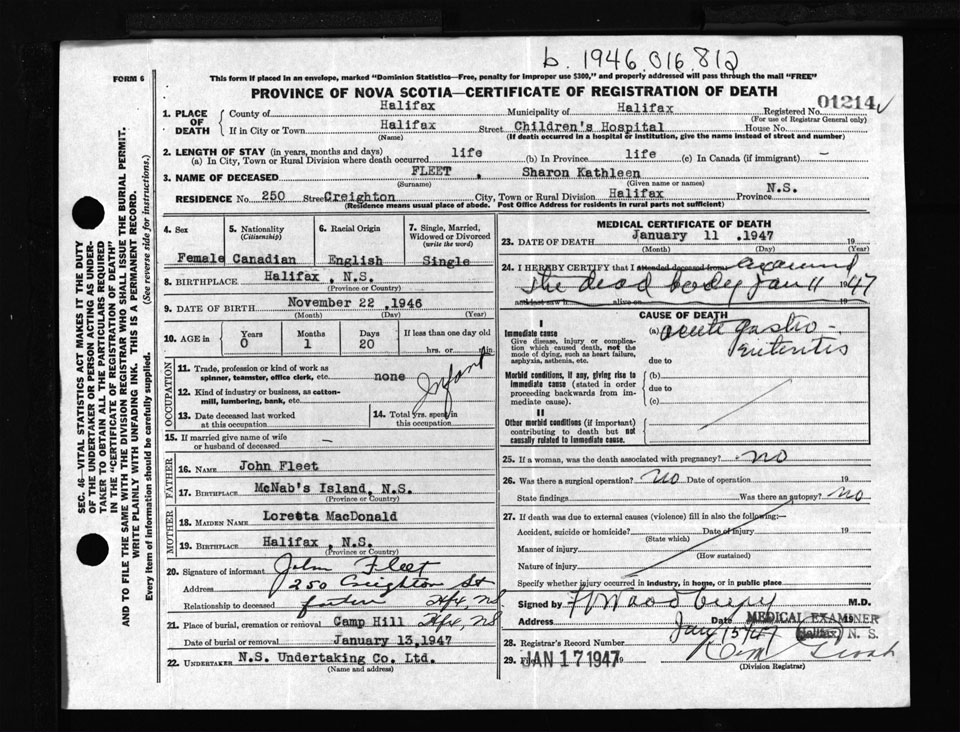 b. 1946.016.812
FORM 6
This form if placed in an envelope, marked "Dominion Statistics—Free, penalty for improper use $300," and properly addressed will pass through the mail "FREE"
PROVINCE OF NOVA SCOTIA—CERTIFICATE OF REGISTRATION OF DEATH
1. PLACE OF DEATH
County of Halifax Municipality of Halifax Registered No. 01214
(For use of Registrar General only)
If in City or Town Halifax Street Children's Hospital House No.
(Name) (If death occurred in a hospital or institution, give the name instead of street and number)
2. LENGTH OF STAY (in years, months and days)
(a) In City, Town or Rural Division where death occurred life (b) In Province life (c) In Canada (if immigrant) –
3. NAME OF DECEASED FLEET , Sharon Kathleen
(Surname) (Given name or names)
RESIDENCE No. 250 Street Creighton City, Town or Rural Division Halifax Province N.S.
(Residence means usual place of abode. Post Office Address for residents in rural parts not sufficient)
4. Sex
Female
5. Nationality (Citizenship)
Canadian
6. Racial Origin
English
7. Single, Married, Widowed or Divorced (write the word)
Single
8. BIRTHPLACE Halifax , N.S.
(Province or Country)
9. DATE OF BIRTH November 22 , 1946
(Month) (Day) (Year)
10. AGE in Years Months Days If less than one day old
0 1 20 hrs. or min.
OCCUPATION
11. Trade, profession or kind of work as spinner, teamster, office clerk, etc. none
Infant
12. Kind of industry or business, as cotton-mill, lumbering, bank, etc.
13. Date deceased last worked at this occupation
14. Total yrs. spent in this occupation
15. If married give name of wife or husband of deceased –
FATHER
16. NAME John Fleet
17. BIRTHPLACE McNab's Island, N.S.
(Province or Country)
MOTHER
18. MAIDEN NAME Loretta MacDonald
19. BIRTHPLACE Halifax , N.S.
(Province or Country)
20. Signature of informant John Fleet
Address 250 Creighton St
Relationship to deceased father Hfx, NS
21. Place of burial, cremation or removal Camp Hill Hfx, NS
Date of burial or removal January 13,1947
22. UNDERTAKER N.S. Undertaking Co. Ltd.
(Name and address)
MEDICAL CERTIFICATE OF DEATH
23. DATE OF DEATH January 11 ,1947 19
(Month) (Day) (Year)
24. I HEREBY CERTIFY that I attended deceased from examined
the dead body Jan 11 1947
and last saw h alive on
CAUSE OF DEATH
I
Immediate cause
Give disease, injury or complication which caused death, not the mode of dying, such as heart failure, asphyxia, asthenia, etc.
(a) acute gastro-
enteritis
due to
Morbid conditions, if any, giving rise to immediate cause (stated in order proceeding backwards from immediate cause).
(b)
due to
(c)
II
Other morbid conditions (if important) contributing to death but not causally related to immediate cause.
25. If a woman, was the death associated with pregnancy? no
26. Was there a surgical operation? No Date of operation 19
State findings Was there an autopsy? no
27. If death was due to external causes (violence) fill in also the following:—
Accident, suicide or homicide? Date of injury 19
(State which)
Manner of injury
(How sustained)
Nature of injury
Specify whether injury occurred in industry, in home, or in public place
Signed by M.D.
Address Date 19
MEDICAL EXAMINER
Halifax, N. S.
Jany 15/47
28. Registrar's Record Number
29. Filed JAN 17 1947 19
(Division Registrar)
SEC. 46—VITAL STATISTICS ACT MAKES IT THE DUTY
OF THE UNDERTAKER OR PERSON ACTING AS UNDER-
TAKER TO OBTAIN ALL THE PARTICULARS REQUIRED
IN THE "CERTIFICATE OF REGISTRATION OF DEATH"
AND TO FILE THE SAME WITH THE DIVISION REGISTRAR WHO SHALL ISSUE THE BURIAL PERMIT.
WRITE PLAINLY WITH UNFADING INK. THIS IS A PERMANENT RECORD.
Every item of information should be carefully supplied. (See reverse side for instructions.)